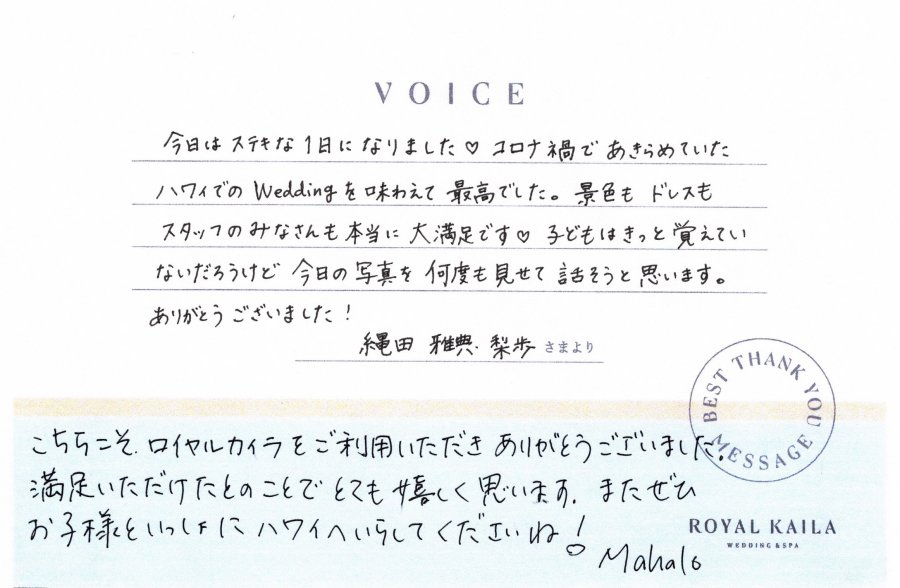 VOICE
今日はステキな1日になりました♡ コロナ禍であきらめていた
ハワイでのWeddingを味わえて最高でした。景色もドレスも
スタッフのみなさんも本当に大満足です♡ 子どもはきっと覚えてい
ないだろうけど今日の写真を何度も見せて話そうと思います。
ありがとうございました!
縄田 雅典・梨歩 さまより
BEST THANK YOU MESSAGE
こちらこそ、ロイヤルカイラをご利用いただきありがとうございました。
満足いただけたとのことでとても嬉しく思います。またぜひ
お子様といっしょにハワイへいらしてくださいね!
Mahalo
ROYAL KAILA
WEDDING & SPA